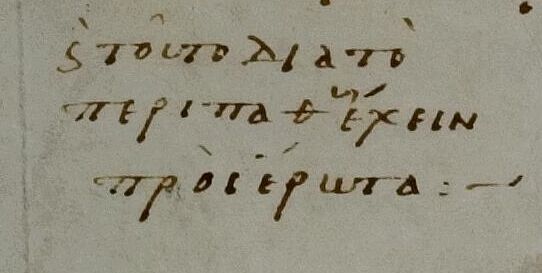 ϛ τοῦτο διατὸ
περιπαθ ἔχειν
πρὸς ἔρωτα :–